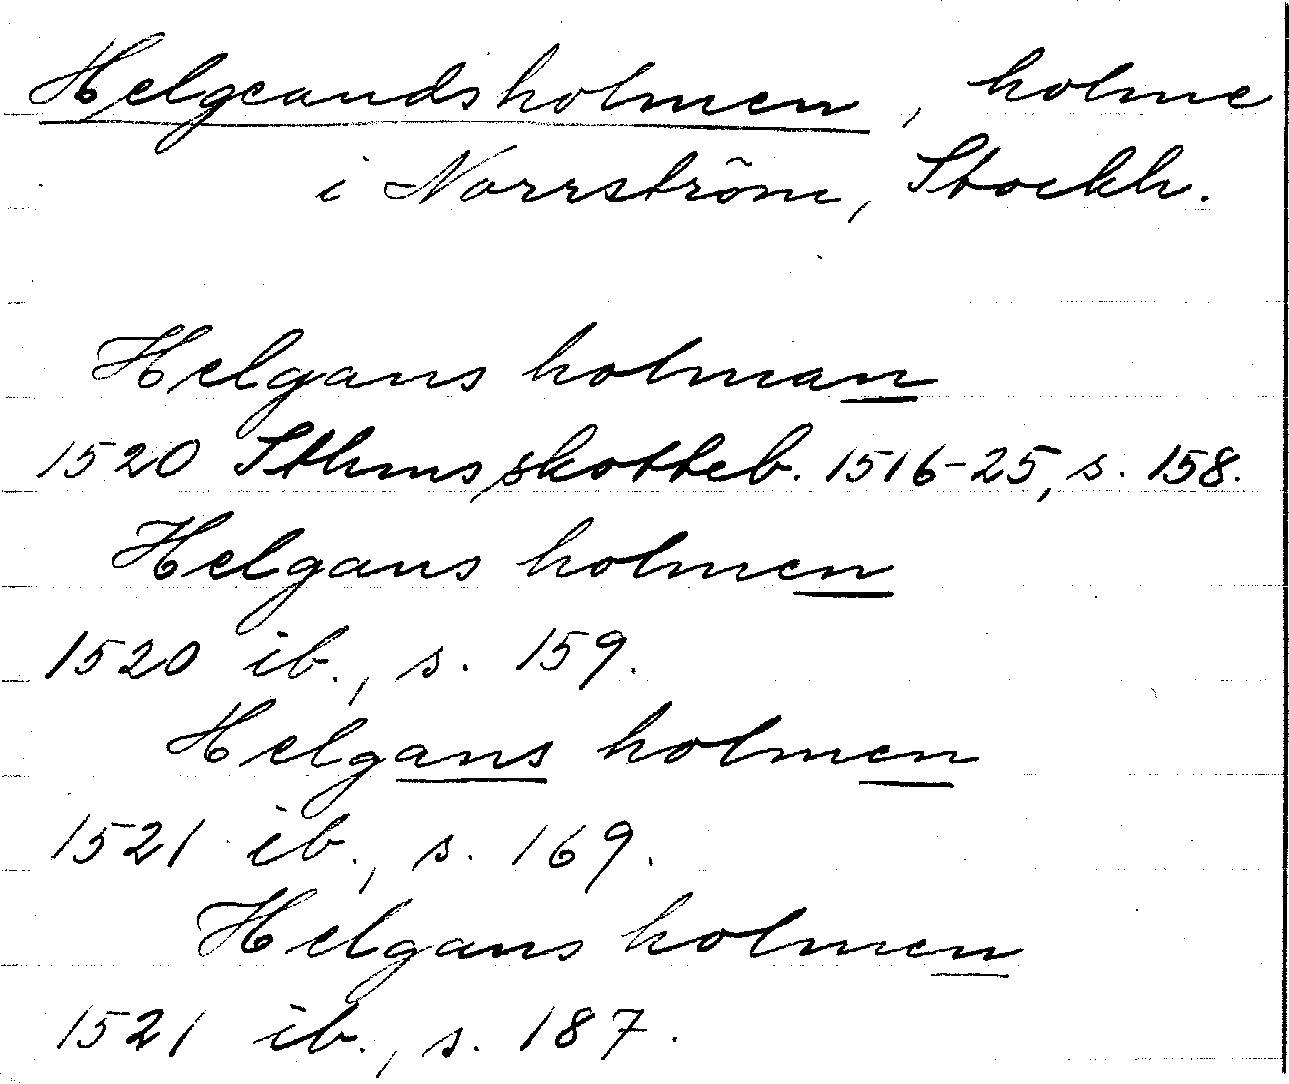 Helgeandsholmen, holme
i Norrström, Stockh.
Helgans holman
1520 Sthms skotteb. 1516-25, s. 158.
Helgans holmen
1520 ib., s. 159.
Helgans holmen
1521 ib., s. 169.
Helgans holmen
1521 ib., s. 187.